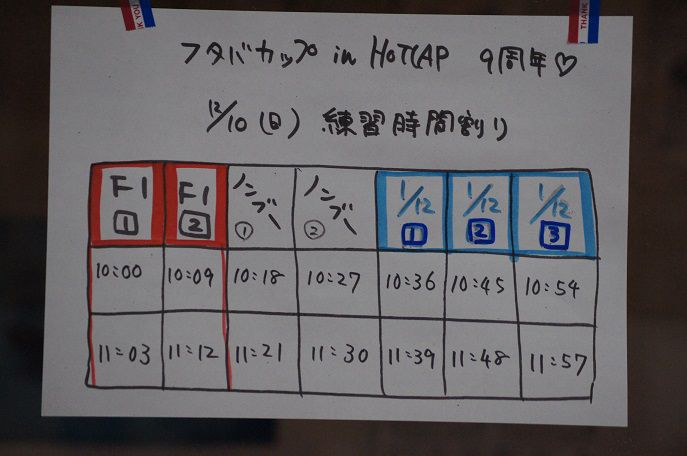 フタバカップ in HOTLAP 9周年♡
12/10(日) 練習時間割り
F1 1 F1 2 ノンブー ① ノンブー ② 1/12 1 1/12 2 1/12 3
10:00 10:09 10:18 10:27 10:36 10:45 10:54
11:03 11:12 11:21 11:30 11:39 11:48 11:57
THANK